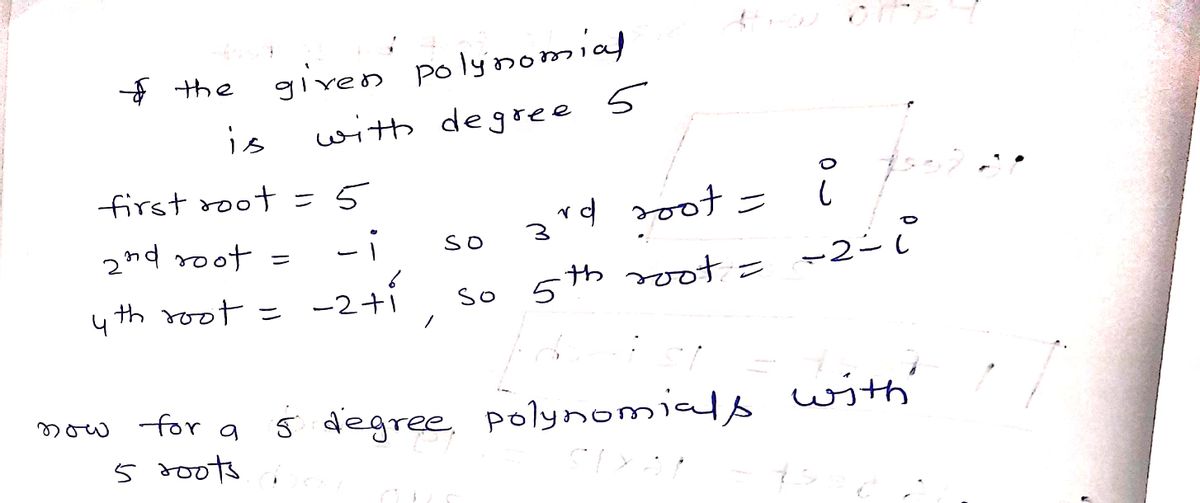 the given polynomial
is with degree 5
first root = 5
2nd root = -i so 3rd root = i
4th root = -2+i, so 5th root = -2-i
now for a 5 degree polynomials with
5 roots